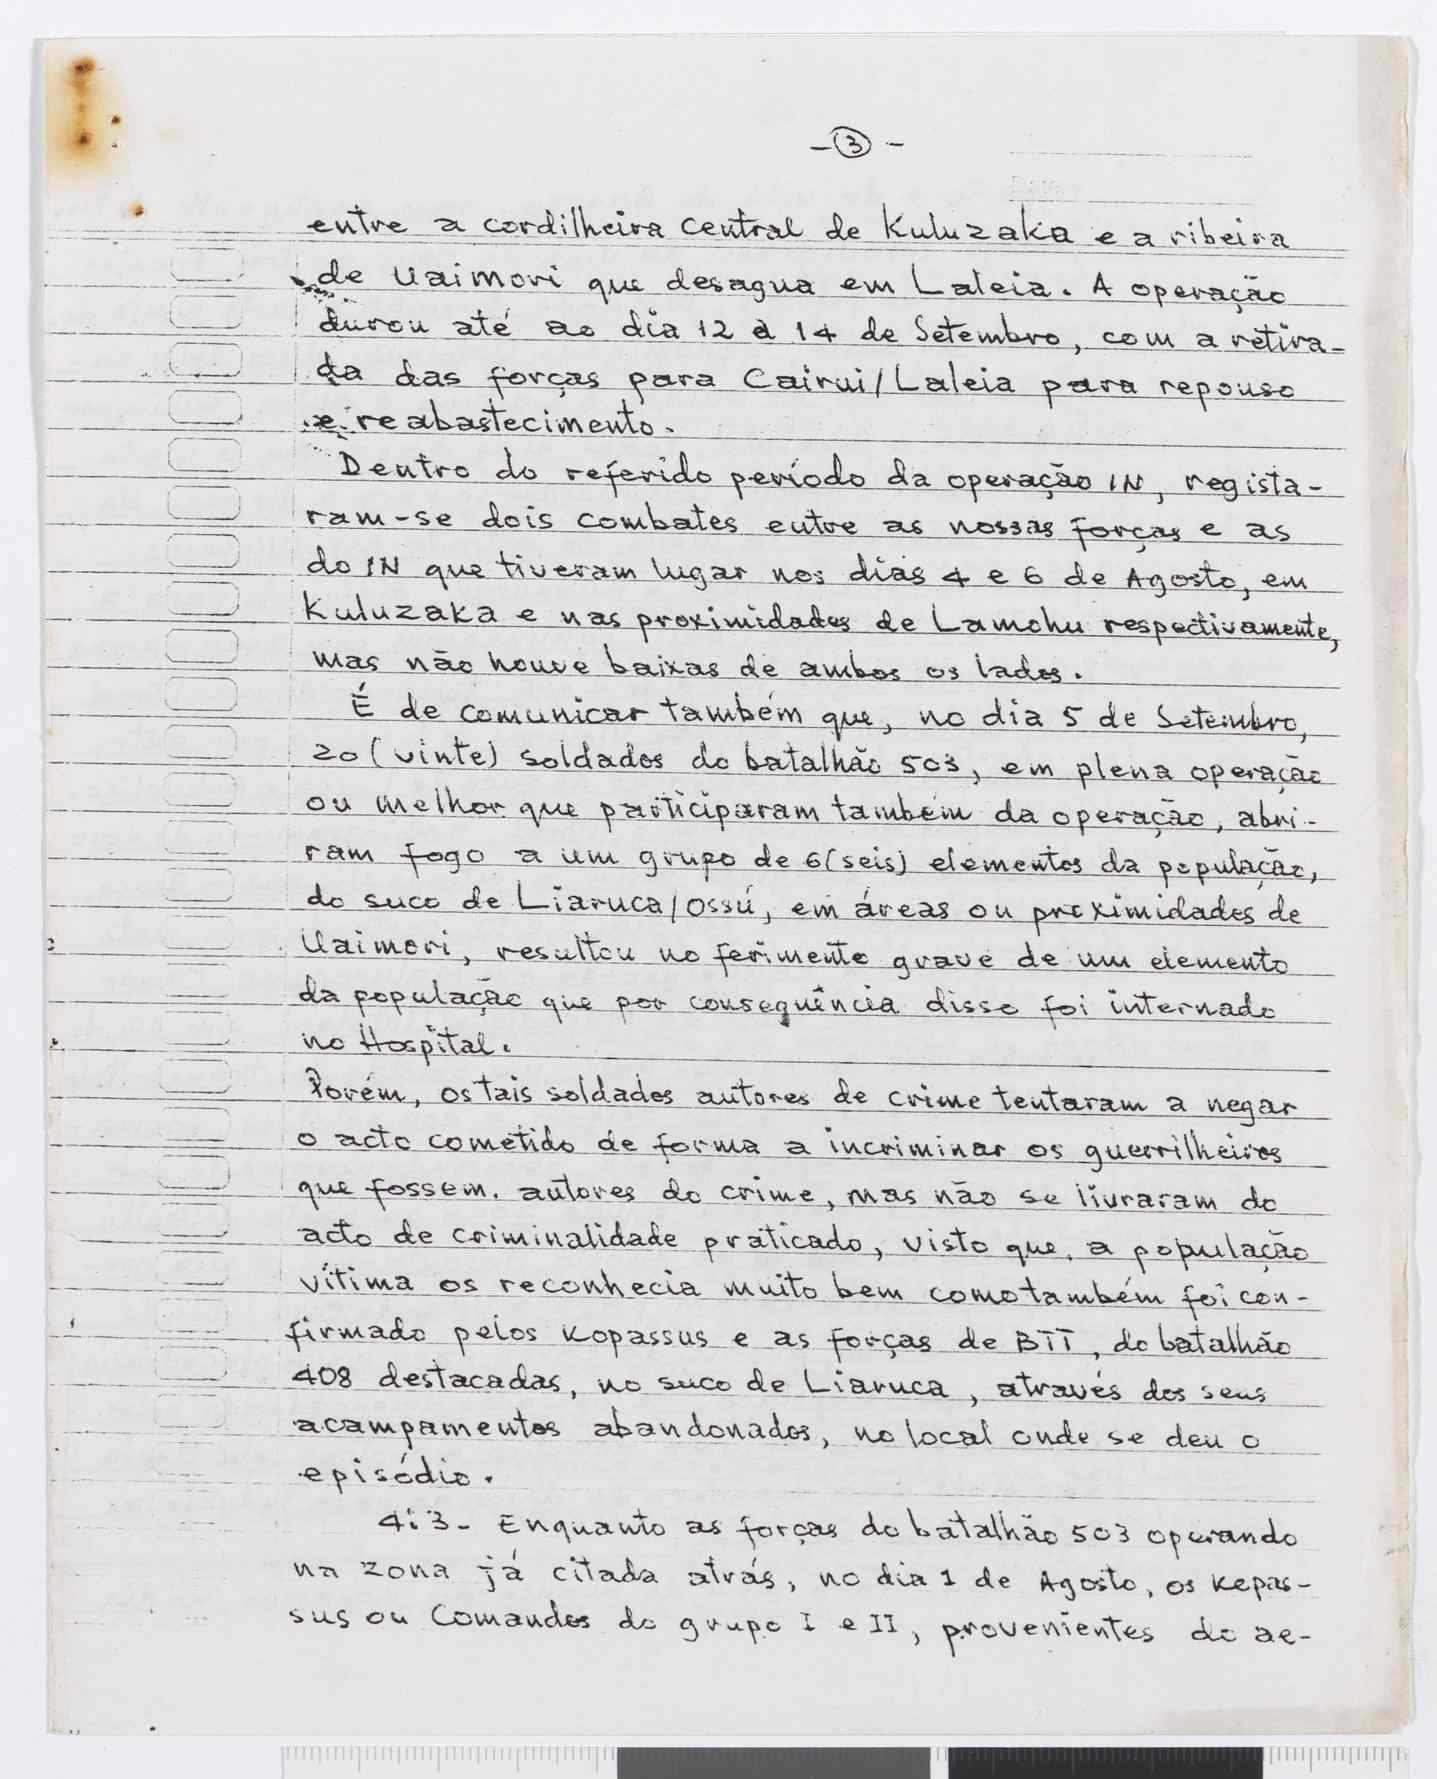 - 3 -
entre a cordilheira central de Kuluzaka e a ribeira
de Uaimori que desagua em Laleia. A operação
durou até ao dia 12 à 14 de Setembro, com a retira-
da das forças para Cairui/Laleia para repouso
e reabastecimento.
Dentro do referido período da operação IN, regista-
ram-se dois combates entre as nossas forças e as
do IN que tiveram lugar nos dias 4 e 6 de Agosto, em
Kuluzaka e nas proximidades de Lamohu respectivamente,
mas não houve baixas de ambos os lados.
É de comunicar também que, no dia 5 de Setembro,
20 (vinte) soldados do batalhão 503, em plena operação
ou melhor que participaram também da operação, abri-
ram fogo a um grupo de 6 (seis) elementos da população,
do suco de Liaruca/Ossú, em áreas ou proximidades de
Uaimori, resultou no ferimento grave de um elemento
da população que por consequência disso foi internado
no Hospital.
Porém, os tais soldados autores de crime tentaram a negar
o acto cometido de forma a incriminar os guerrilheiros
que fossem. autores do crime, mas não se livraram do
acto de criminalidade praticado, visto que, a população
vítima os reconhecia muito bem como também foi con-
firmado pelos Kopassus e as forças de BTT, do batalhão
408 destacadas, no suco de Liaruca, através dos seus
acampamentos abandonados, no local onde se deu o
episódio.
4.3- Enquanto as forças do batalhão 503 operando
na zona já citada atrás, no dia 1 de Agosto, os Kepas-
sus ou Comandos do grupo I e II, provenientes do ae-